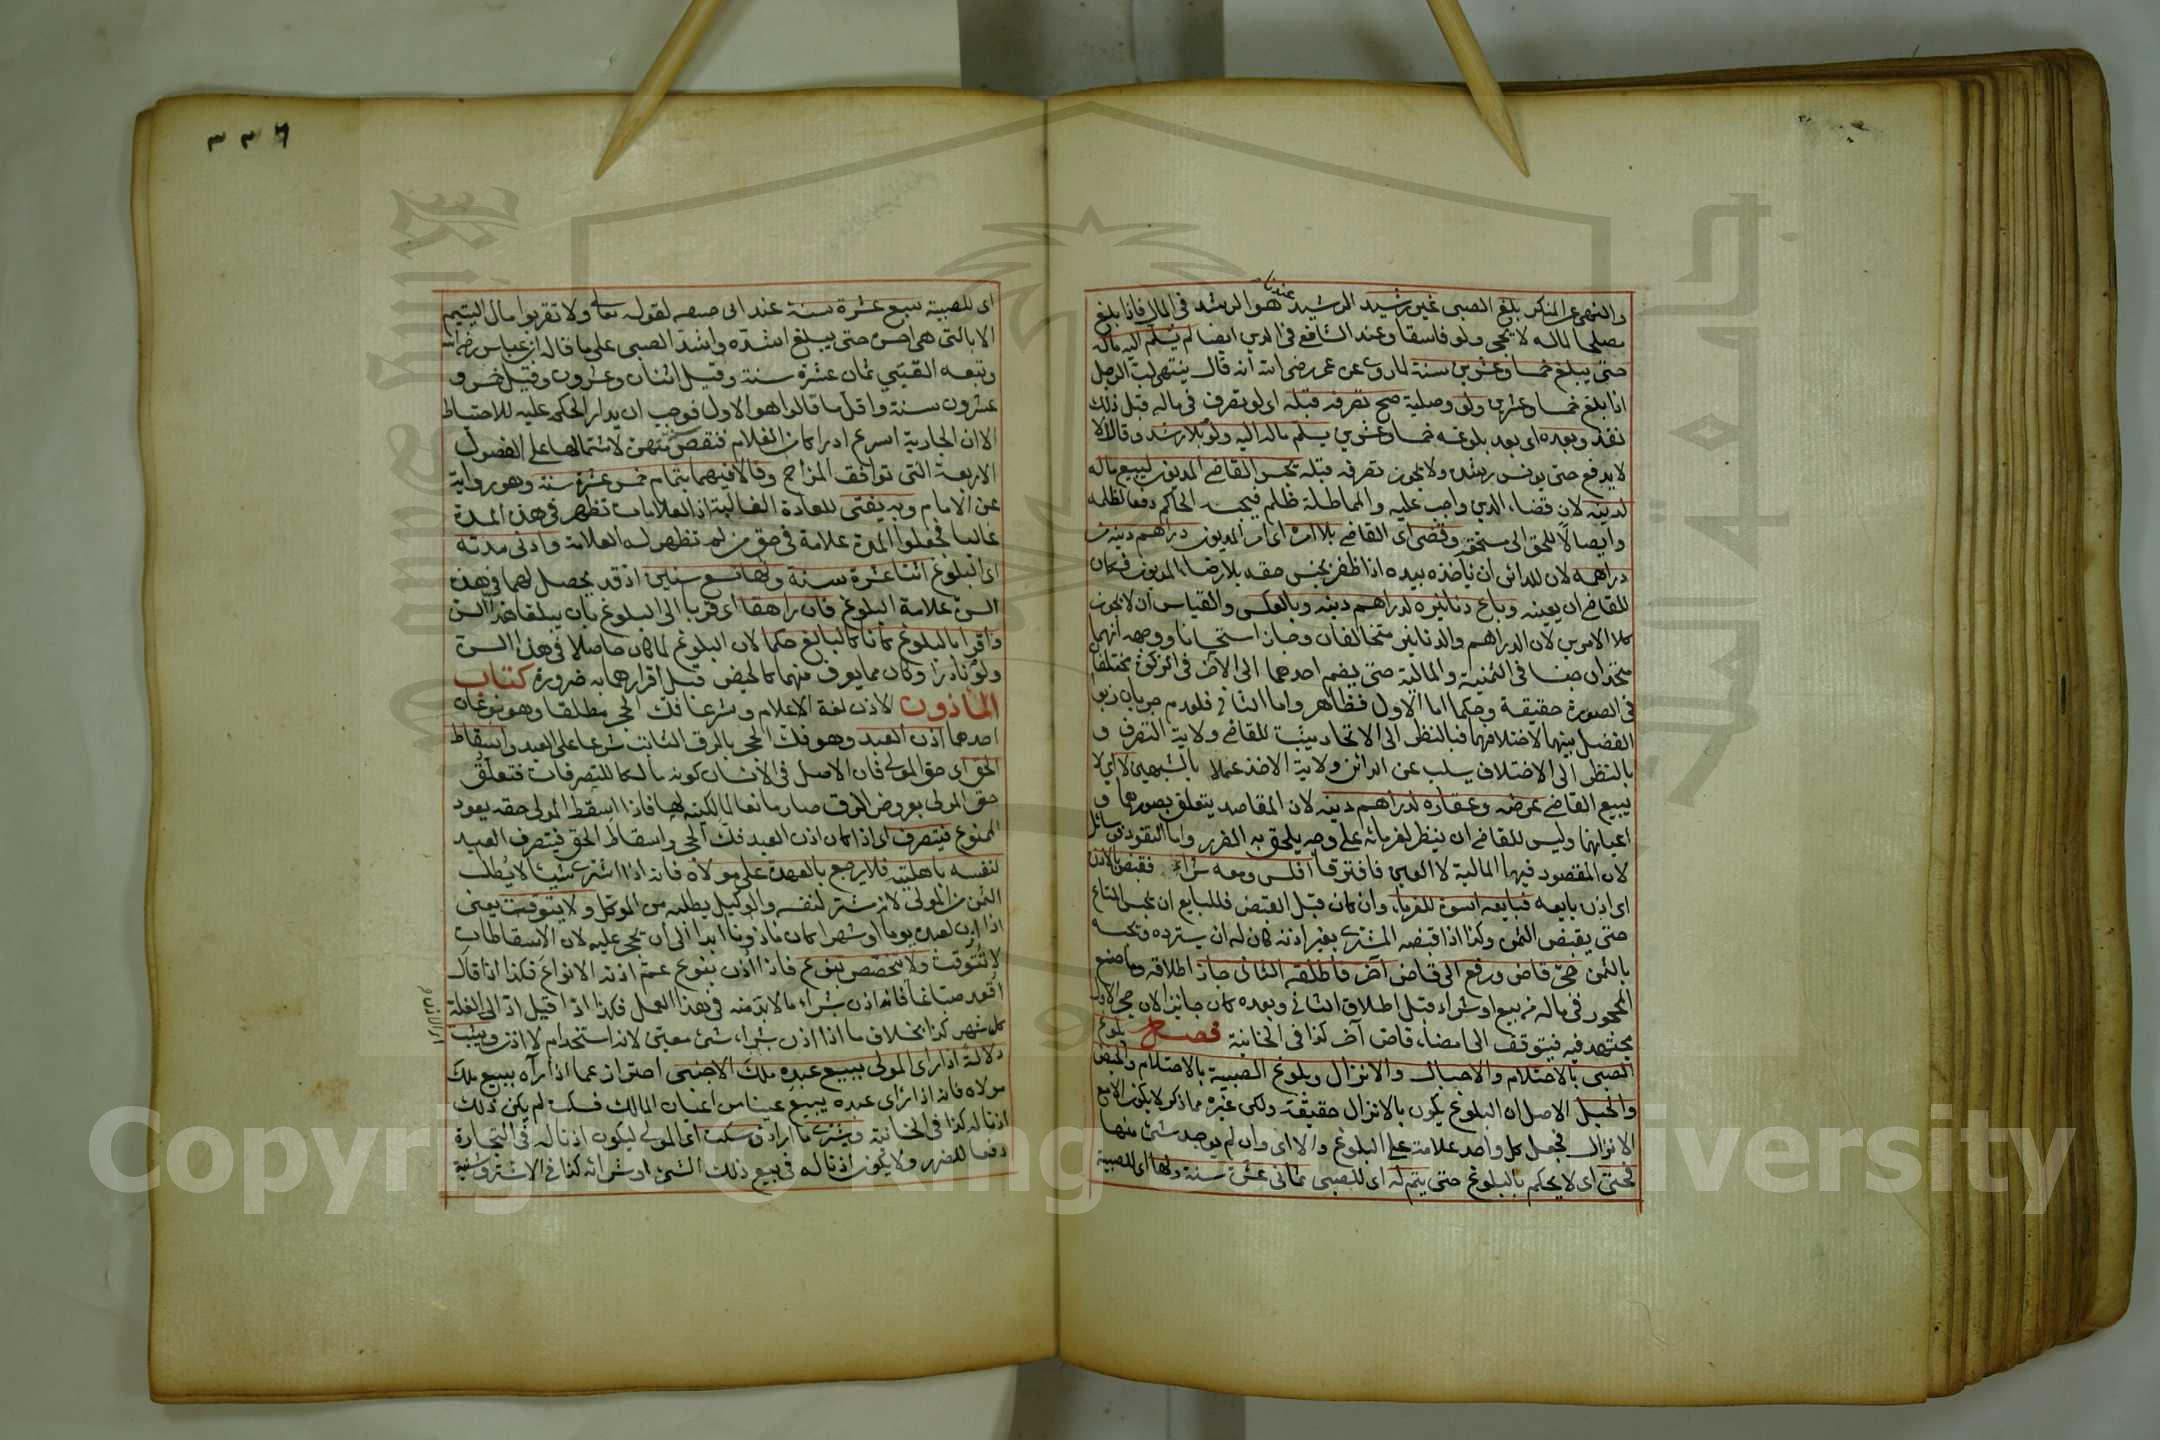 والنهى عن المنكر بلغ الصبى غير رشيد الرشيد عندنا هو الرشد فى المال فاذا بلغ
مصلحا لماله لا يحجر ولو فاسقا وعند الشافعى فى الدين ايضا لم يسلم اليه ماله
حتى يبلغ خمسا وعشرين سنة لما روى عن عمر رضى الله انه قال ينتهى لب الرجل
اذا بلغ خمسا وعشرين ولو وصلية صح تصرفه قبله اى لو تصرف فى ماله قبل ذلك
نفذ وبعده اى بعد بلوغه خمسا وعشرين يسلم ماله اليه ولو بلا رشد وقالا لا
لا يدفع حتى يونس رشده ولا يجوز تصرفه قبله يحبس القاضى المديون ليبيع ماله
لدينه لان قضاء الدين واجب عليه والمماطلة ظلم فيحبسه الحاكم دفعا لظلمه
وايصالا للحق الى مستحقه وقضى اى القاضى بلا امره اى امر المديون دراهم دينه من
دراهمه لان للدائن ان ياخذه بيده اذا ظفر بجنس حقه بلا رضاء المديون فكان
للقاضى ان يعينه وباع دنانيره لدراهم دينه وبالعكس والقياس ان لا يجوز
كلا الامرين لان الدراهم والدنانير متخالفان وجاز استحسانا ووجهه انهما
متحدان جنسا فى الثمنية والمالية حتى يضم احدهما الى الاخر فى الزكوة مختلفا
فى الصورة حقيقة وحكما اما الاول فظاهر واما الثانى فلعدم جريان ربوا
الفضل بينهما لاختلافهما فبالنظر الى الاتحاد يثبت للقاضى ولاية التصرف و
بالنظر الى الاختلاف يسلب عن الدائن ولاية الاخذ عملا بالشبهين لا اى لا
يبيع القاضى عرضه وعقاره لدراهم دينه لان المقاصد يتعلق بصورها و
اعيانها وليس للقاضى ان ينظر لغرمائه على وجه يلحق به الضرر واما النقود وسائل
لان المقصود فيها المالية لا العين فافترقا افلس ومعه شراء فقبض بالاذن
اى اذن بايعه فبايعه اسوة للغرماء وان كان قبل القبض فللبايع ان يحبس المتاع
حتى يقبض الثمن وكذا اذا قبضه المشترى بغير اذنه كان له ان يسترده ويحبسه
بالثمن حجر قاض ورفع الى قاض آخر فاطلقه الثانى جاز اطلاقه وما صنع
المحجور فى ماله من بيع او شراء قبل اطلاق الثانى وبعده كان جايزا لان حجر الاول
مجتهد فيه فيتوقف الى امضاء قاض آخر كذا فى الخانية فصل بلوغ
الصبى بالاحتلام والاحبال والانزال وبلوغ الصبية بالاحتلام والحيض
والحبل الاصل ان البلوغ يكون بالانزال حقيقة ولكن غيره مما ذكر لا يكون الا مع
الانزال فجعل كل واحد علامة على البلوغ والا اى وان لم يوجد شئ منها
فحتى اى لا يحكم بالبلوغ حتى يتم له اى للصبى ثمانى عشرة سنة ولها اى للصبية
٣٣٦
اى للصبية سبع عشرة سنة عند ابى حنيفه لقوله تعالى ولا تقربوا مال اليتيم
الا بالتى هى احسن حتى يبلغ اشده واشد الصبى على ما قاله ابن عباس رضى الله
وتبعه القتبي ثمان عشرة سنة وقيل اثنان وعشرون وقيل خمس و
عشرون سنة واقل ما قالوا هو الاول فوجب ان يدار الحكم عليه للاحتياط
الا ان الجارية اسرع ادراكا من الغلام فنقص سنة منهن لاشتمالها على الفصول
الاربعة التى توافق المزاج وقالا فيهما بتمام خمس عشرة سنة وهو رواية
عن الامام وبه يفتى للعادة الغالبة اذ العلامات تظهر فى هذه المدة
غالبا فجعلوا المدة علامة فى حق من لم تظهر له العلامة وادنى مدته
اى البلوغ اثنا عشرة سنة ولها تسع سنين اذ قد يحصل لهما فى هذه
السن علامة البلوغ فان راهقا اى قربا الى البلوغ بان يبلغا هذا السن
واقرا بالبلوغ كانا كالبالغ حكما لان البلوغ لما كان حاصلا فى هذه السنة
ولو نادرا وكان مما يعرف منهما كالحيض قبل اقرارهما به ضرورة كتاب
الماذون الاذن لغة الاعلام وشرعا فك الحجر مطلقا وهو نوعان
احدهما اذن العبد وهو فك الحجر بالرق الثابت شرعا على العبد واسقاط
الحق اى حق المولى فان الاصل فى الانسان كونه مالكا للتصرفات فتعلق
حق المولى بعروض الرق صار مانعا لمالكيته لها فاذا اسقط المولى حقه يعود
الممنوع فيتصرف اى اذا كان اذن العبد فك الحجر واسقاط الحق فيتصرف العبد
لنفسه باهليته فلا يرجع بالعهدة على مولاه فانه اذا اشترى شيئا لا يطلب
الثمن من المولى لانه مشتر لنفسه والوكيل يطلبه من الموكل ولا يتوقت يعنى
اذا اذن لعبده يوما او شهرا كان ماذونا ابدا الى ان يحجر عليه لان الاسقاطات
لا تتوقت ولا يتخصص بنوع فاذا اذن بنوع عم اذنه الانواع فكذا اذا قال
اقعد صباغا فانه اذن بشراء ما لا بد منه فى هذا العمل فكذا اذا قيل اد الى الغلة
كل شهر كذا بخلاف ما اذا اذن بشراء شئ معين لانه استخدام لا اذن ويثبت
دلالة اذا راى المولى يبيع عبده ملك الاجنبى احتراز عما اذا رآه يبيع ملك
مولاه فانه اذا راى عبده يبيع عينا من اعيان المالك فسكت لم يكن ذلك
اذنا له كذا فى الخانية ويشترى ما اراد وسكت اى المولى ليكون اذنا له فى التجارة
دفعا للضرر ولا يكون اذنا له فى بيع ذلك الشئ او شرائه كذا فى الاشتروشنية
Copyright © King Saud University
King Saud University